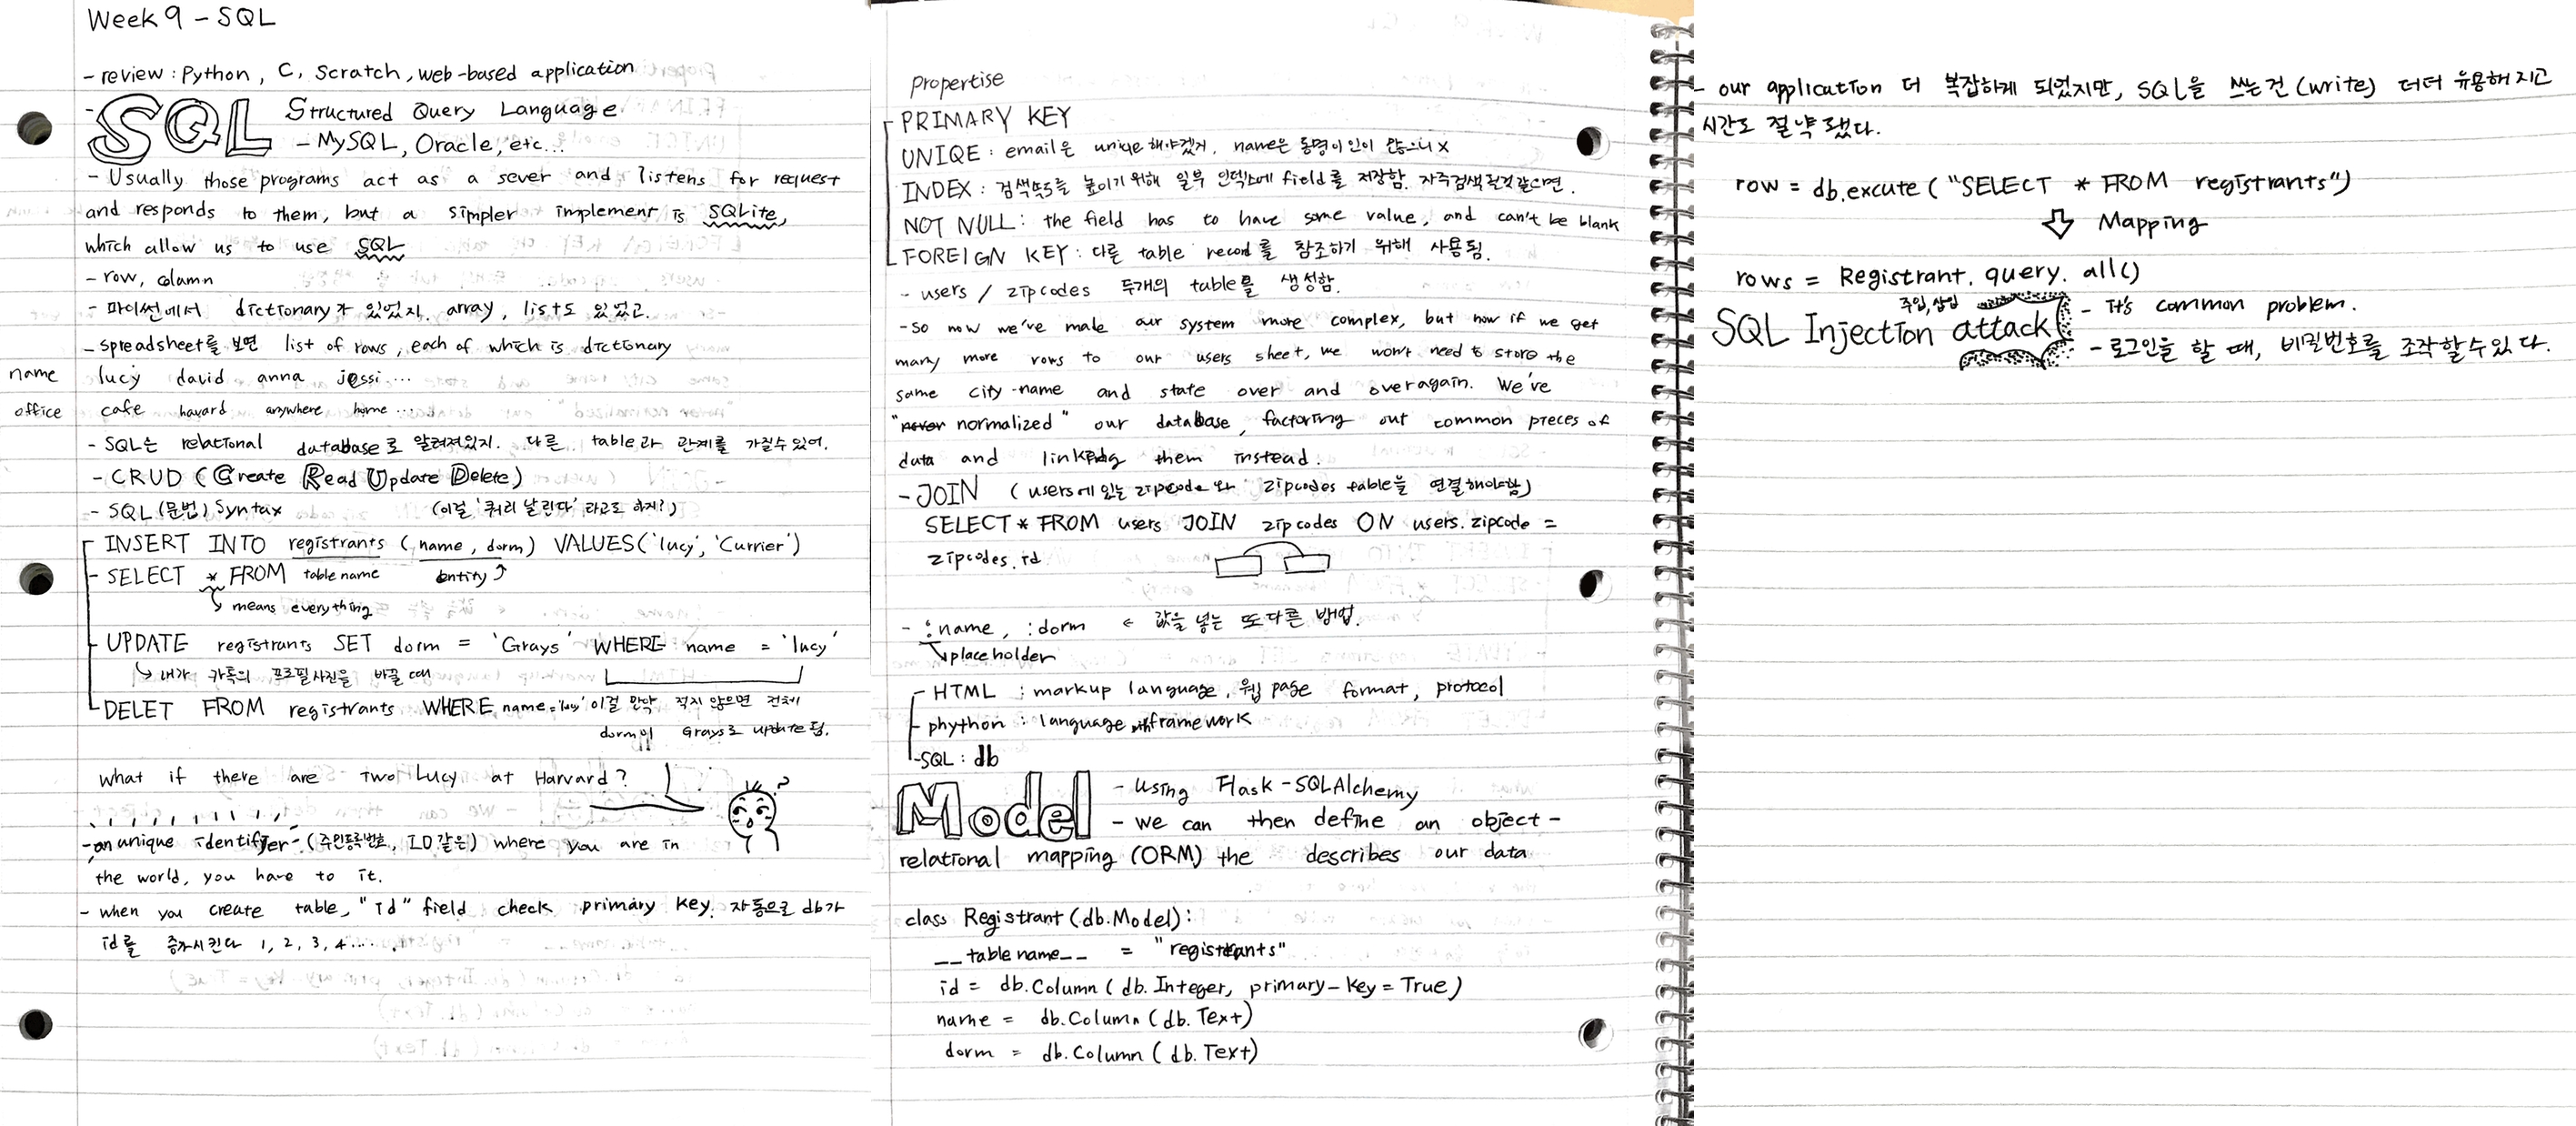 Week 9 - SQL
- review : Python, C, Scratch, web-based application
- SQL Structured Query Language
- MySQL, Oracle, etc...
- Usually those programs act as a sever and listens for request
and responds to them, but a simpler implement is SQLite,
which allow us to use SQL
- row, column
- 파이썬에서 dictionary가 있었지. array, list도 있었고.
- spreadsheet를 보면 list of rows, each of which is dictionary
name lucy david anna jessi ...
office cafe havard anywhere home ...
- SQL은 relational database로 알려져있지. 다른 table과 관계를 가질수있어.
- CRUD (Create Read Update Delete)
- SQL (문법) Syntax (이걸 '쿼리 날린다' 라고도 하지?)
INSERT INTO registrants (name, dorm) VALUES('lucy', 'Currier')
- SELECT * FROM table name entity
means everything
- UPDATE registrants SET dorm = 'Grays' WHERE name = 'lucy'
내가 카톡의 프로필사진을 바꿀 때
DELET FROM registrants WHERE name='lucy' 이걸 만약 적지 않으면 전체
dorm이 Grays로 update 됨.
what if there are two Lucy at Harvard?
?
- an unique identifier - (주민등록번호, ID 같은) where you are in
the world, you have to it.
- when you create table, "id" field check primary key. 자동으로 db가
id를 증가시킨다 1, 2, 3, 4 .....
propertise
PRIMARY KEY
UNIQE : email은 unique 해야겠거, name은 동명이인이 많으니 x
INDEX : 검색속도를 높이기 위해 일부 인덱스에 field를 저장함. 자주검색될것같으면.
NOT NULL : the field has to have some value, and can't be blank
FOREIGN KEY : 다른 table record를 참조하기 위해 사용됨.
- users / zipcodes 두개의 table를 생성함.
- So now we've make our system more complex, but now if we get
many more rows to our users sheet, we won't need to store the
same city-name and state over and over again. We've
" normalized" our database, factoring out common preces of
data and linking them instead.
- JOIN (users에 있는 zipcode와 zipcodes table을 연결해야함)
SELECT * FROM users JOIN zipcodes ON users.zipcode =
zipcodes.id
- :name, :dorm ← 값을 넣는 또다른 방법.
placeholder
HTML : markup language, 웹 page format, protocol
phython : language with framework
SQL : db
Model - using Flask-SQLAlchemy
- we can then define an object-
relational mapping (ORM) the describes our data
class Registrant (db.Model):
__table name__ = "registrants"
id = db.Column (db.Integer, primary-key = True)
name = db.Column (db.Text)
dorm = db.Column (db.Text)
- our application 더 복잡하게 되었지만, SQL을 쓰는건 (write) 더더 유용해지고
시간도 절약됐다.
row = db.excute ("SELECT * FROM registrants")
Mapping
rows = Registrant.query.all()
주입,삽입
SQL Injection attack - It's common problem.
- 로그인을 할 때, 비밀번호를 조작할수있다.